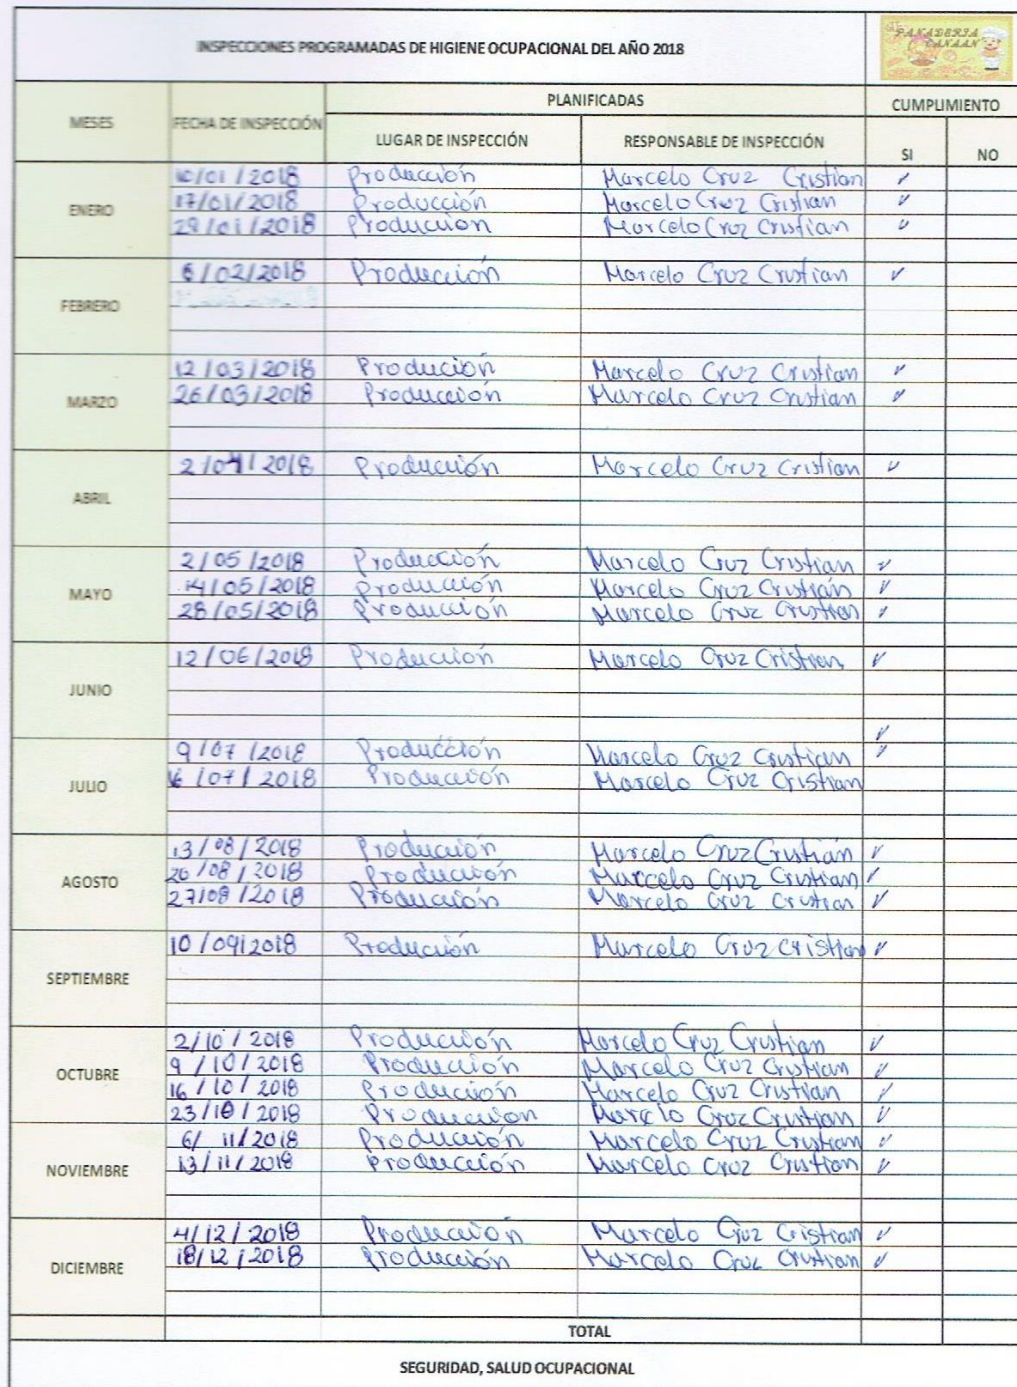 INSPECCIONES PROGRAMADAS DE HIGIENE OCUPACIONAL DEL AÑO 2018
PANADERIA
CANAAN
MESES FECHA DE INSPECCIÓN PLANIFICADAS CUMPLIMIENTO
LUGAR DE INSPECCIÓN RESPONSABLE DE INSPECCIÓN SI NO
ENERO
10/01/2018 Producción Marcelo Cruz Cristian ✓
17/01/2018 Producción Marcelo Cruz Cristian ✓
29/01/2018 Producción Marcelo Cruz Cristian ✓
FEBRERO
6/02/2018 Producción Marcelo Cruz Cristian ✓
MARZO
12/03/2018 Produción Marcelo Cruz Cristian ✓
26/03/2018 Producción Marcelo Cruz Cristian ✓
ABRIL
2/04/2018 Producción Marcelo Cruz Cristian ✓
MAYO
2/05/2018 Producción Marcelo Cruz Cristian ✓
14/05/2018 Producción Marcelo Cruz Cristian ✓
28/05/2018 Producción Marcelo Cruz Cristian ✓
JUNIO
12/06/2018 Producción Marcelo Cruz Cristian ✓
JULIO
✓
9/07/2018 Producción Marcelo Cruz Cristian ✓
16/07/2018 Producción Marcelo Cruz Cristian
AGOSTO
13/08/2018 Producción Marcelo Cruz Cristian ✓
20/08/2018 Producción Marcelo Cruz Cristian ✓
27/08/2018 Producción Marcelo Cruz Cristian ✓
SEPTIEMBRE
10/09/2018 Producción Marcelo Cruz Cristian ✓
OCTUBRE
2/10/2018 Producción Marcelo Cruz Cristian ✓
9/10/2018 Producción Marcelo Cruz Cristian ✓
16/10/2018 Producción Marcelo Cruz Cristian ✓
23/10/2018 Producción Marcelo Cruz Cristian ✓
NOVIEMBRE
6/11/2018 Producción Marcelo Cruz Cristian ✓
13/11/2018 Producción Marcelo Cruz Cristian ✓
DICIEMBRE
4/12/2018 Producción Marcelo Cruz Cristian ✓
18/12/2018 Producción Marcelo Cruz Cristian ✓
TOTAL
SEGURIDAD, SALUD OCUPACIONAL